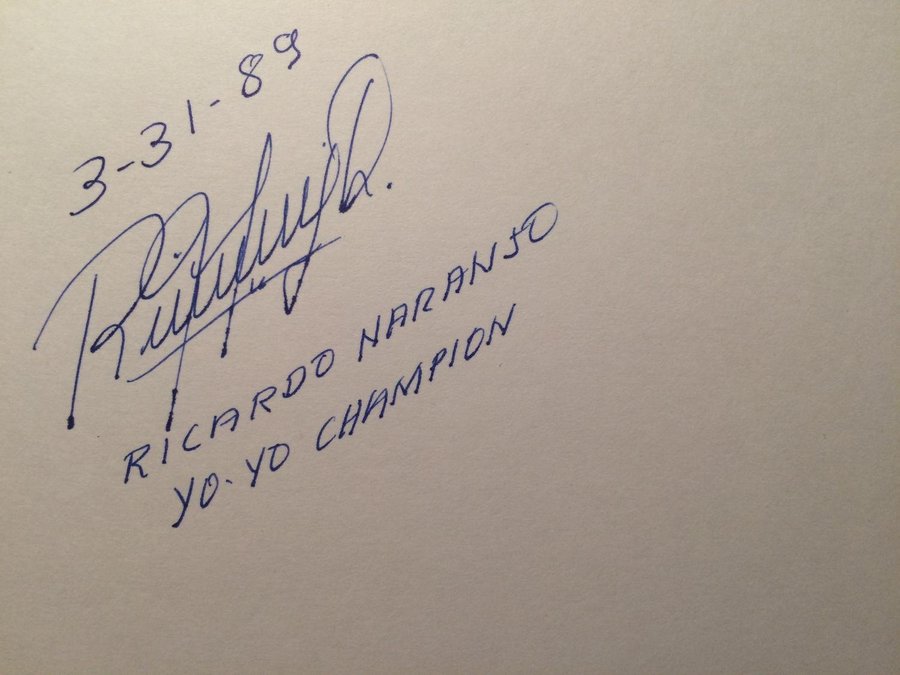 3-31-89
RICARDO NARANJO
YO-YO CHAMPION